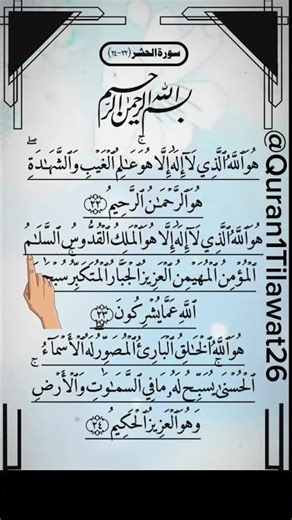 سورة الحشر (٢٢-٢٤)
بسم الله الرحمن الرحيم
هُوَ ٱللَّهُ ٱلَّذِي لَآ إِلَٰهَ إِلَّا هُوَۖ عَٰلِمُ ٱلۡغَيۡبِ وَٱلشَّهَٰدَةِۖ
هُوَ ٱلرَّحۡمَٰنُ ٱلرَّحِيمُ ٢٢
هُوَ ٱللَّهُ ٱلَّذِي لَآ إِلَٰهَ إِلَّا هُوَ ٱلۡمَلِكُ ٱلۡقُدُّوسُ ٱلسَّلَٰمُ
ٱلۡمُؤۡمِنُ ٱلۡمُهَيۡمِنُ ٱلۡعَزِيزُ ٱلۡجَبَّارُ ٱلۡمُتَكَبِّرُۚ سُبۡحَٰنَ
ٱللَّهِ عَمَّا يُشۡرِكُونَ ٢٣
هُوَ ٱللَّهُ ٱلۡخَٰلِقُ ٱلۡبَارِئُ ٱلۡمُصَوِّرُۖ لَهُ ٱلۡأَسۡمَآءُ
ٱلۡحُسۡنَىٰۚ يُسَبِّحُ لَهُۥ مَا فِي ٱلسَّمَٰوَٰتِ وَٱلۡأَرۡضِۖ
وَهُوَ ٱلۡعَزِيزُ ٱلۡحَكِيمُ ٢٤
@Quran1Tilawat26